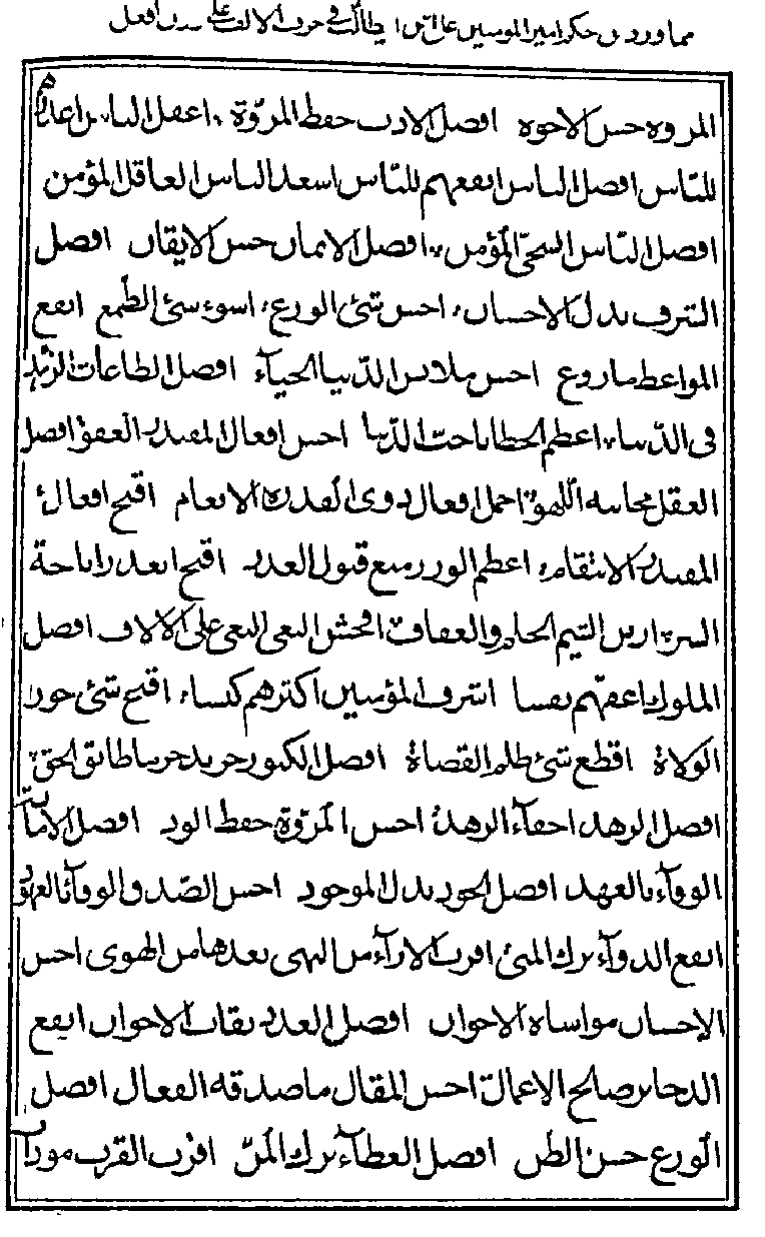 مما ورد من حكم امير المومنين علي بن ابي طالب في حرف الالف على وزن افعل
المروه حسن الاخوه افضل الادب حفظ المروّة اعقل الناس اعذرهم
للنّاس افضل الناس انفعهم للنّاس اسعد الناس العاقل المؤمن
افضل النّاس السخيّ المؤمن افضل الايمان حسن الايقان افضل
الشرف بذل الاحسان احسن شئ الورع اسوء شئ الطّمع انفع
المواعظ ما روع احسن ملابس الدّنيا الحياء افضل الطاعات الزهد
فى الدّنيا اعظم الخطايا حبّ الدّنيا احسن افعال المقتدر العفو افضل
العقل مجانبه اللهو اجمل افعال ذوى القدره الانعام اقبح افعال
المقتدر الانتقام اعظم الوزر منع قبول العذر اقبح الغدر اذاعة
السر ازين الشيم الحلم والعفاف افحش البغى البغى على الالاف افضل
الملوك اعفهم نفسا اشرف المؤمنين اكثرهم كيسا اقبح شئ جور
الولاة افظع شئ ظلم القضاة افضل الكنوز حر يدخر ما طابق الحق
افضل الزهد اخفاء الزهد احسن المروّة حفظ الود افضل الامانة
الوفاء بالعهد افضل الجود بذل الموجود احسن الصّدق الوفاء بالعهود
انفع الدواء ترك المنى اقرب الاراء من النهى بعدها من الهوى احسن
الاحسان مواساة الاخوان افضل العدد ثقات الاخوان انفع
الذخائر صالح الاعمال احسن المقال ما صدقه الفعال افضل
الورع حسن الظن افضل العطاء ترك المنّ اقرب القرب مودات